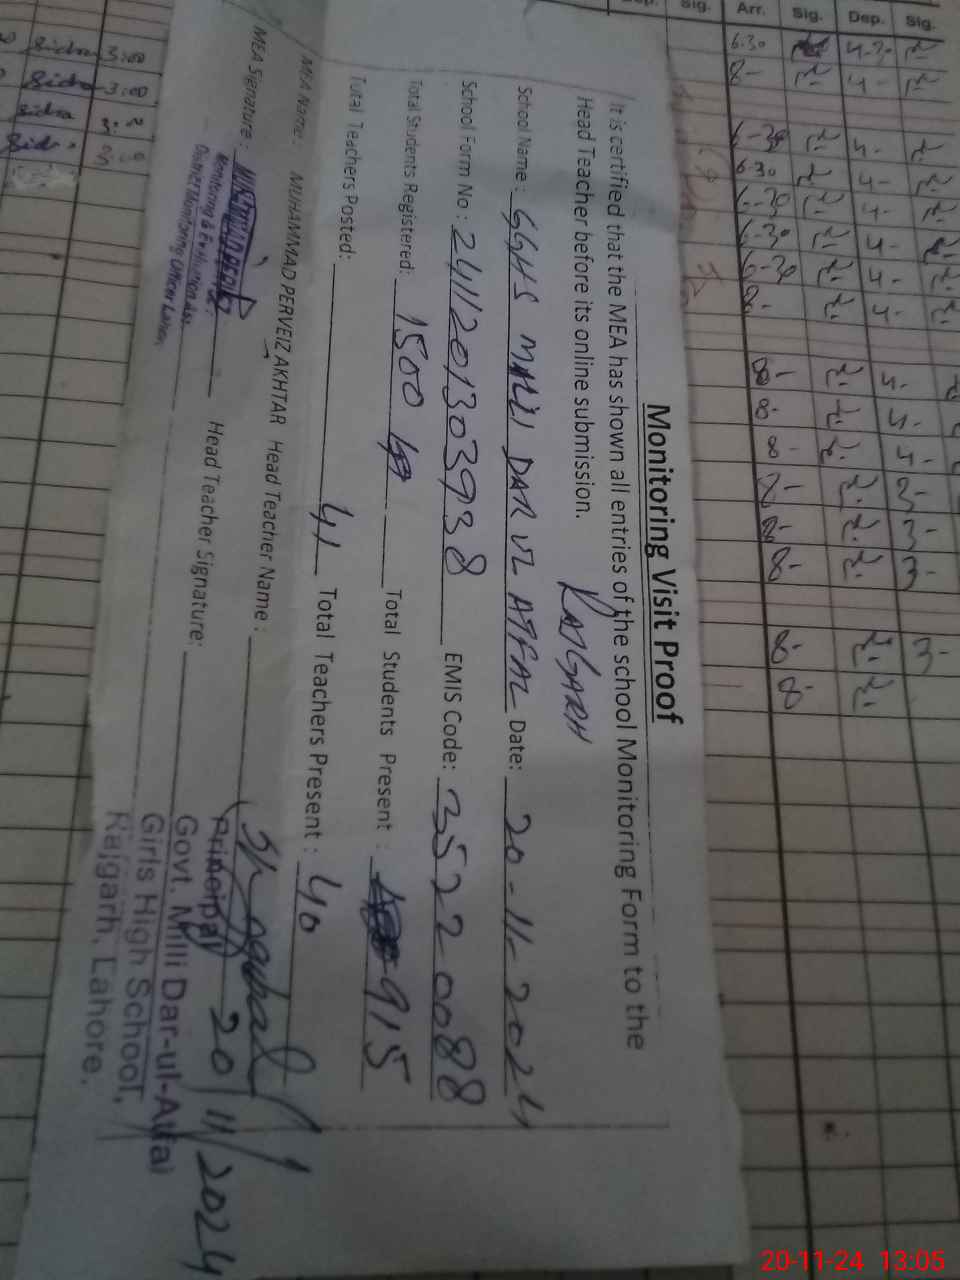 Monitoring Visit Proof
It is certified that the MEA has shown all entries of the school Monitoring Form to the
Head Teacher before its online submission.
RAJGARH
School Name: GGHS MILLI DAR UL ATFAL Date: 20-11-2024
School Form No: 2411201303938 EMIS Code: 35220088
Total Students Registered: 1500 Total Students Present: 915
Total Teachers Posted: 41 Total Teachers Present: 40
MEA Name: MUHAMMAD PERVEIZ AKHTAR Head Teacher Name:
MEA Signature: Head Teacher Signature:
Monitoring & Evaluation Asst.
District Monitoring Officer Lahore.
Principal 20/11/2024
Govt. Milli Dar-ul-Atfal
Girls High School,
Rajgarh, Lahore.
Sig. Arr. Sig. Dep. Sig.
6.30 4-30
8- 4-
6-30 4-
6.30 4-
6-30 4-
6-30 4-
6-30 4-
8- 4-
8- 4-
8- 4-
8-
8- 3-
8- 3-
8- 3-
8- 3-
8-
sidra 3:00
sidra 3:00
sidra
20-11-24 13:05